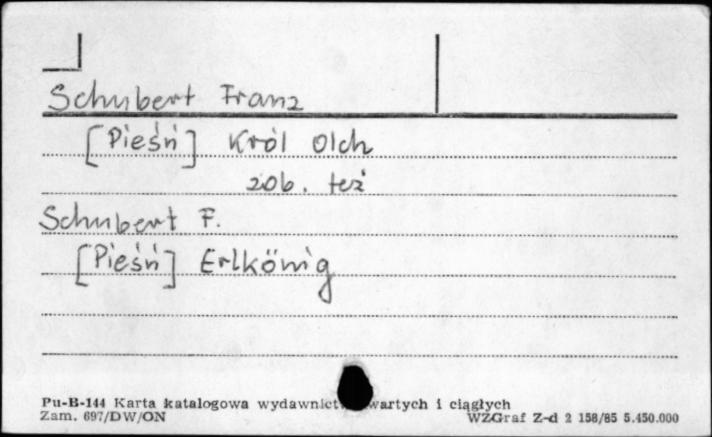 Schubert Franz
[Pieśń] Król Olch
zob. też
Schubert F.
[Pieśń] Erlkönig
Pu-B-144 Karta katalogowa wydawnict wartych i ciągłych
Zam. 697/DW/ON WZGraf Z-d 2 158/85 5.450.000